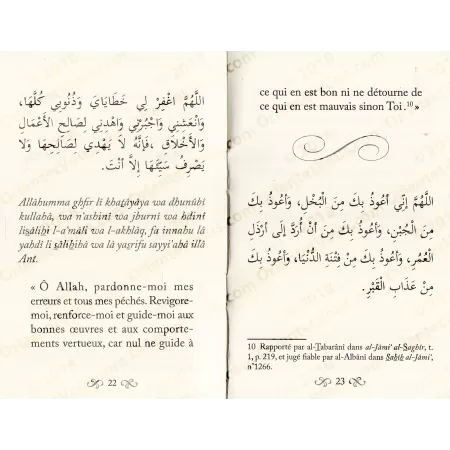 اللَّهُمَّ اغْفِرْ لِي خَطَايَايَ وَذُنُوبِي كُلَّهَا،
وَانْعَشْنِي وَاجْبُرْنِي وَاهْدِنِي لِصَالِحِ الأَعْمَالِ
وَالأَخْلَاقِ ،فَإِنَّهُ لَا يَهْدِي لِصَالِحِهَا وَلَا
يَصْرِفُ سَيِّئَهَا إِلاَّ أَنْتَ.
Allâhumma ghfir lî khaṭâyâya wa dhunûbî
kullahâ, wa n'ashnî wa jburnî wa hdinî
liṣâliḥi l-a'mâli wa l-akhlâq, fa innahu lâ
yahdî li ṣâliḥihâ wa lâ yaṣrifu sayyi'ahâ illâ
Ant.
« Ô Allah, pardonne-moi mes
erreurs et tous mes péchés. Revigore-
moi, renforce-moi et guide-moi aux
bonnes œuvres et aux comporte-
ments vertueux, car nul ne guide à
22
ce qui en est bon ni ne détourne de
ce qui en est mauvais sinon Toi.¹⁰»
اللَّهُمَّ إِنِّي أَعُوذُ بِكَ مِنَ الْبُخْلِ، وَأَعُوذُ بِكَ
مِنَ الْجُبْنِ، وَأَعُوذُ بِكَ مِنْ أَنْ أُرَدَّ إِلَى أَرْذَلِ
الْعُمُرِ، وَأَعُوذُ بِكَ مِنْ فِتْنَةِ الدُّنْيَا، وَأَعُوذُ بِكَ
مِنْ عَذَابِ الْقَبْرِ.
10 Rapporté par al-Ṭabarânî dans al-Jâmi' al-Ṣaghîr, t.
1, p. 219, et jugé fiable par al-Albânî dans Ṣaḥîḥ al-Jâmi',
n°1266.
23